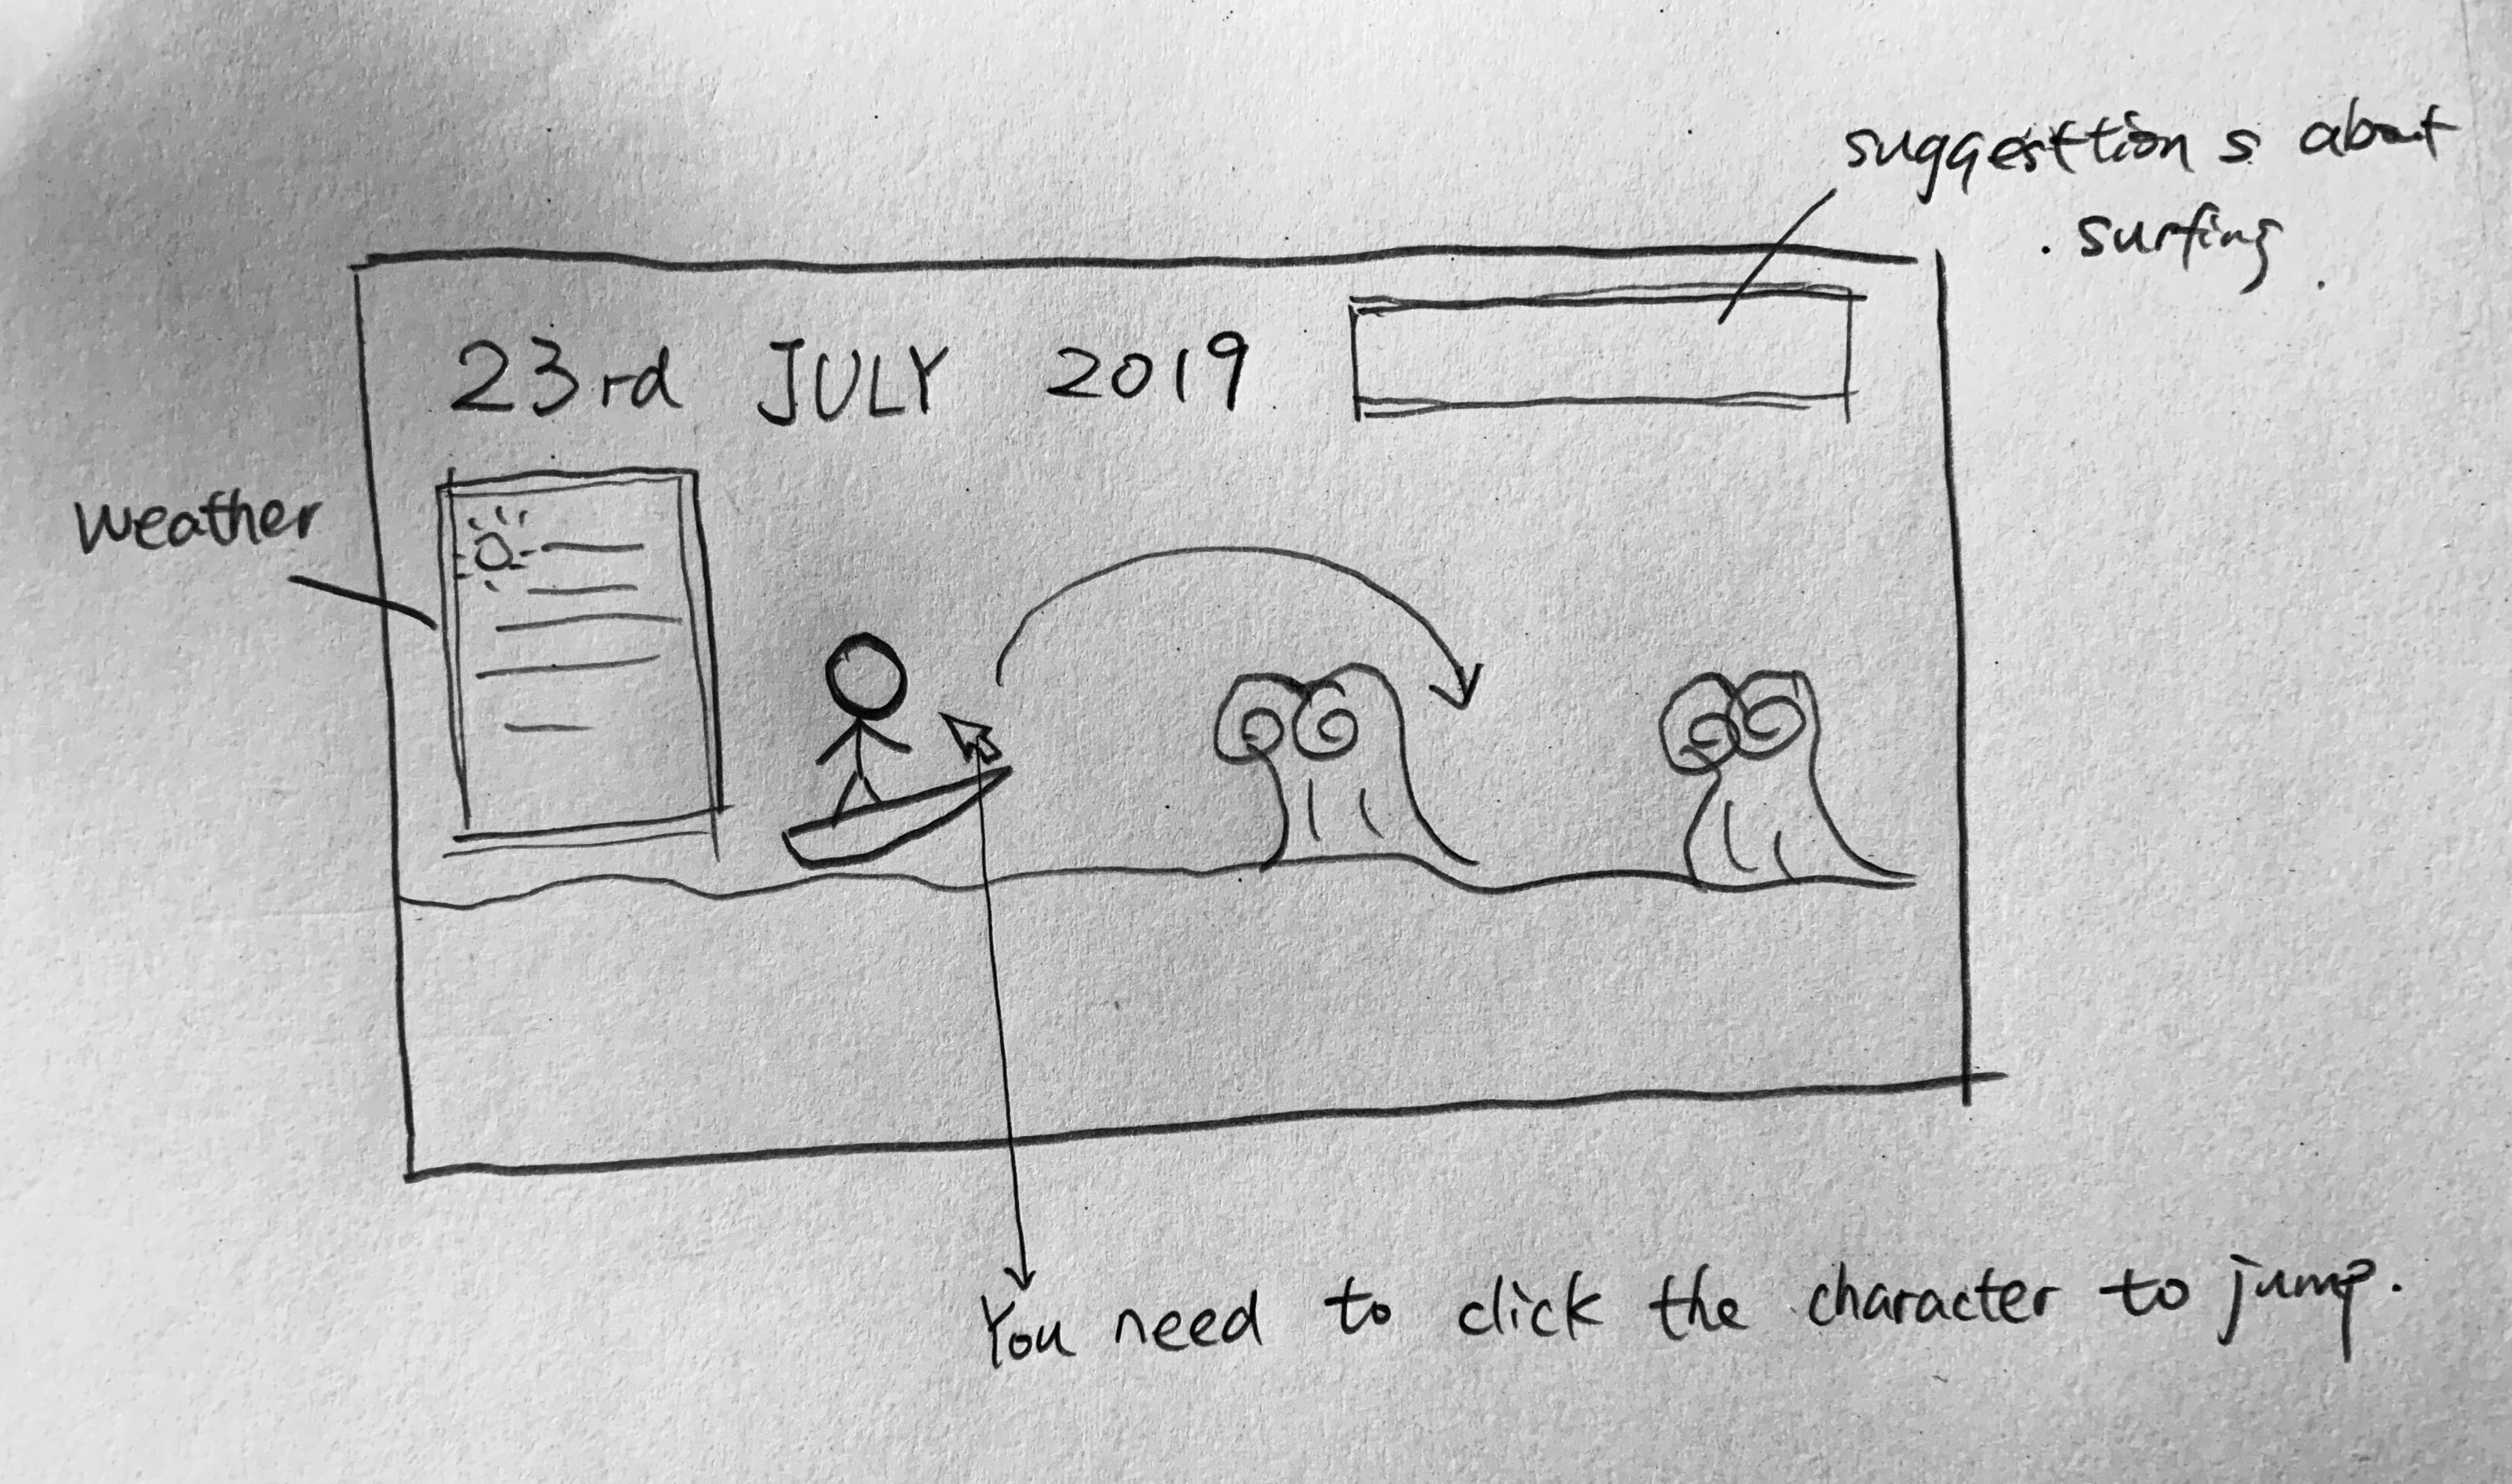 suggesttions about
surfing.
23rd JULY 2019
Weather
You need to click the character to jump.